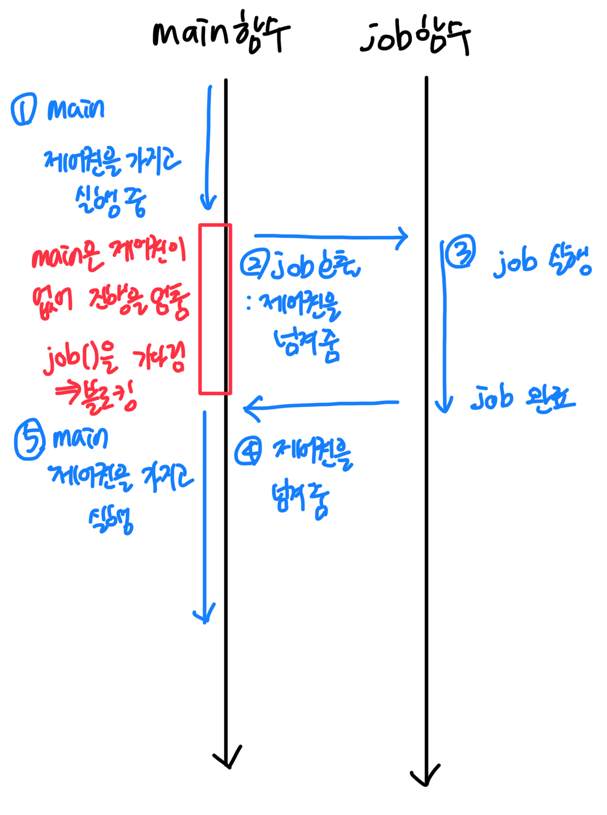 main함수
job함수
① main
제어권을 가지고
실행 중
main은 제어권이
없어 진행을 멈춤
job()을 기다림
⇒블로킹
② job 호출
: 제어권을
넘겨줌
③ job 실행
job 완료
④ 제어권을
넘겨 줌
⑤ main
제어권을 가지고
실행